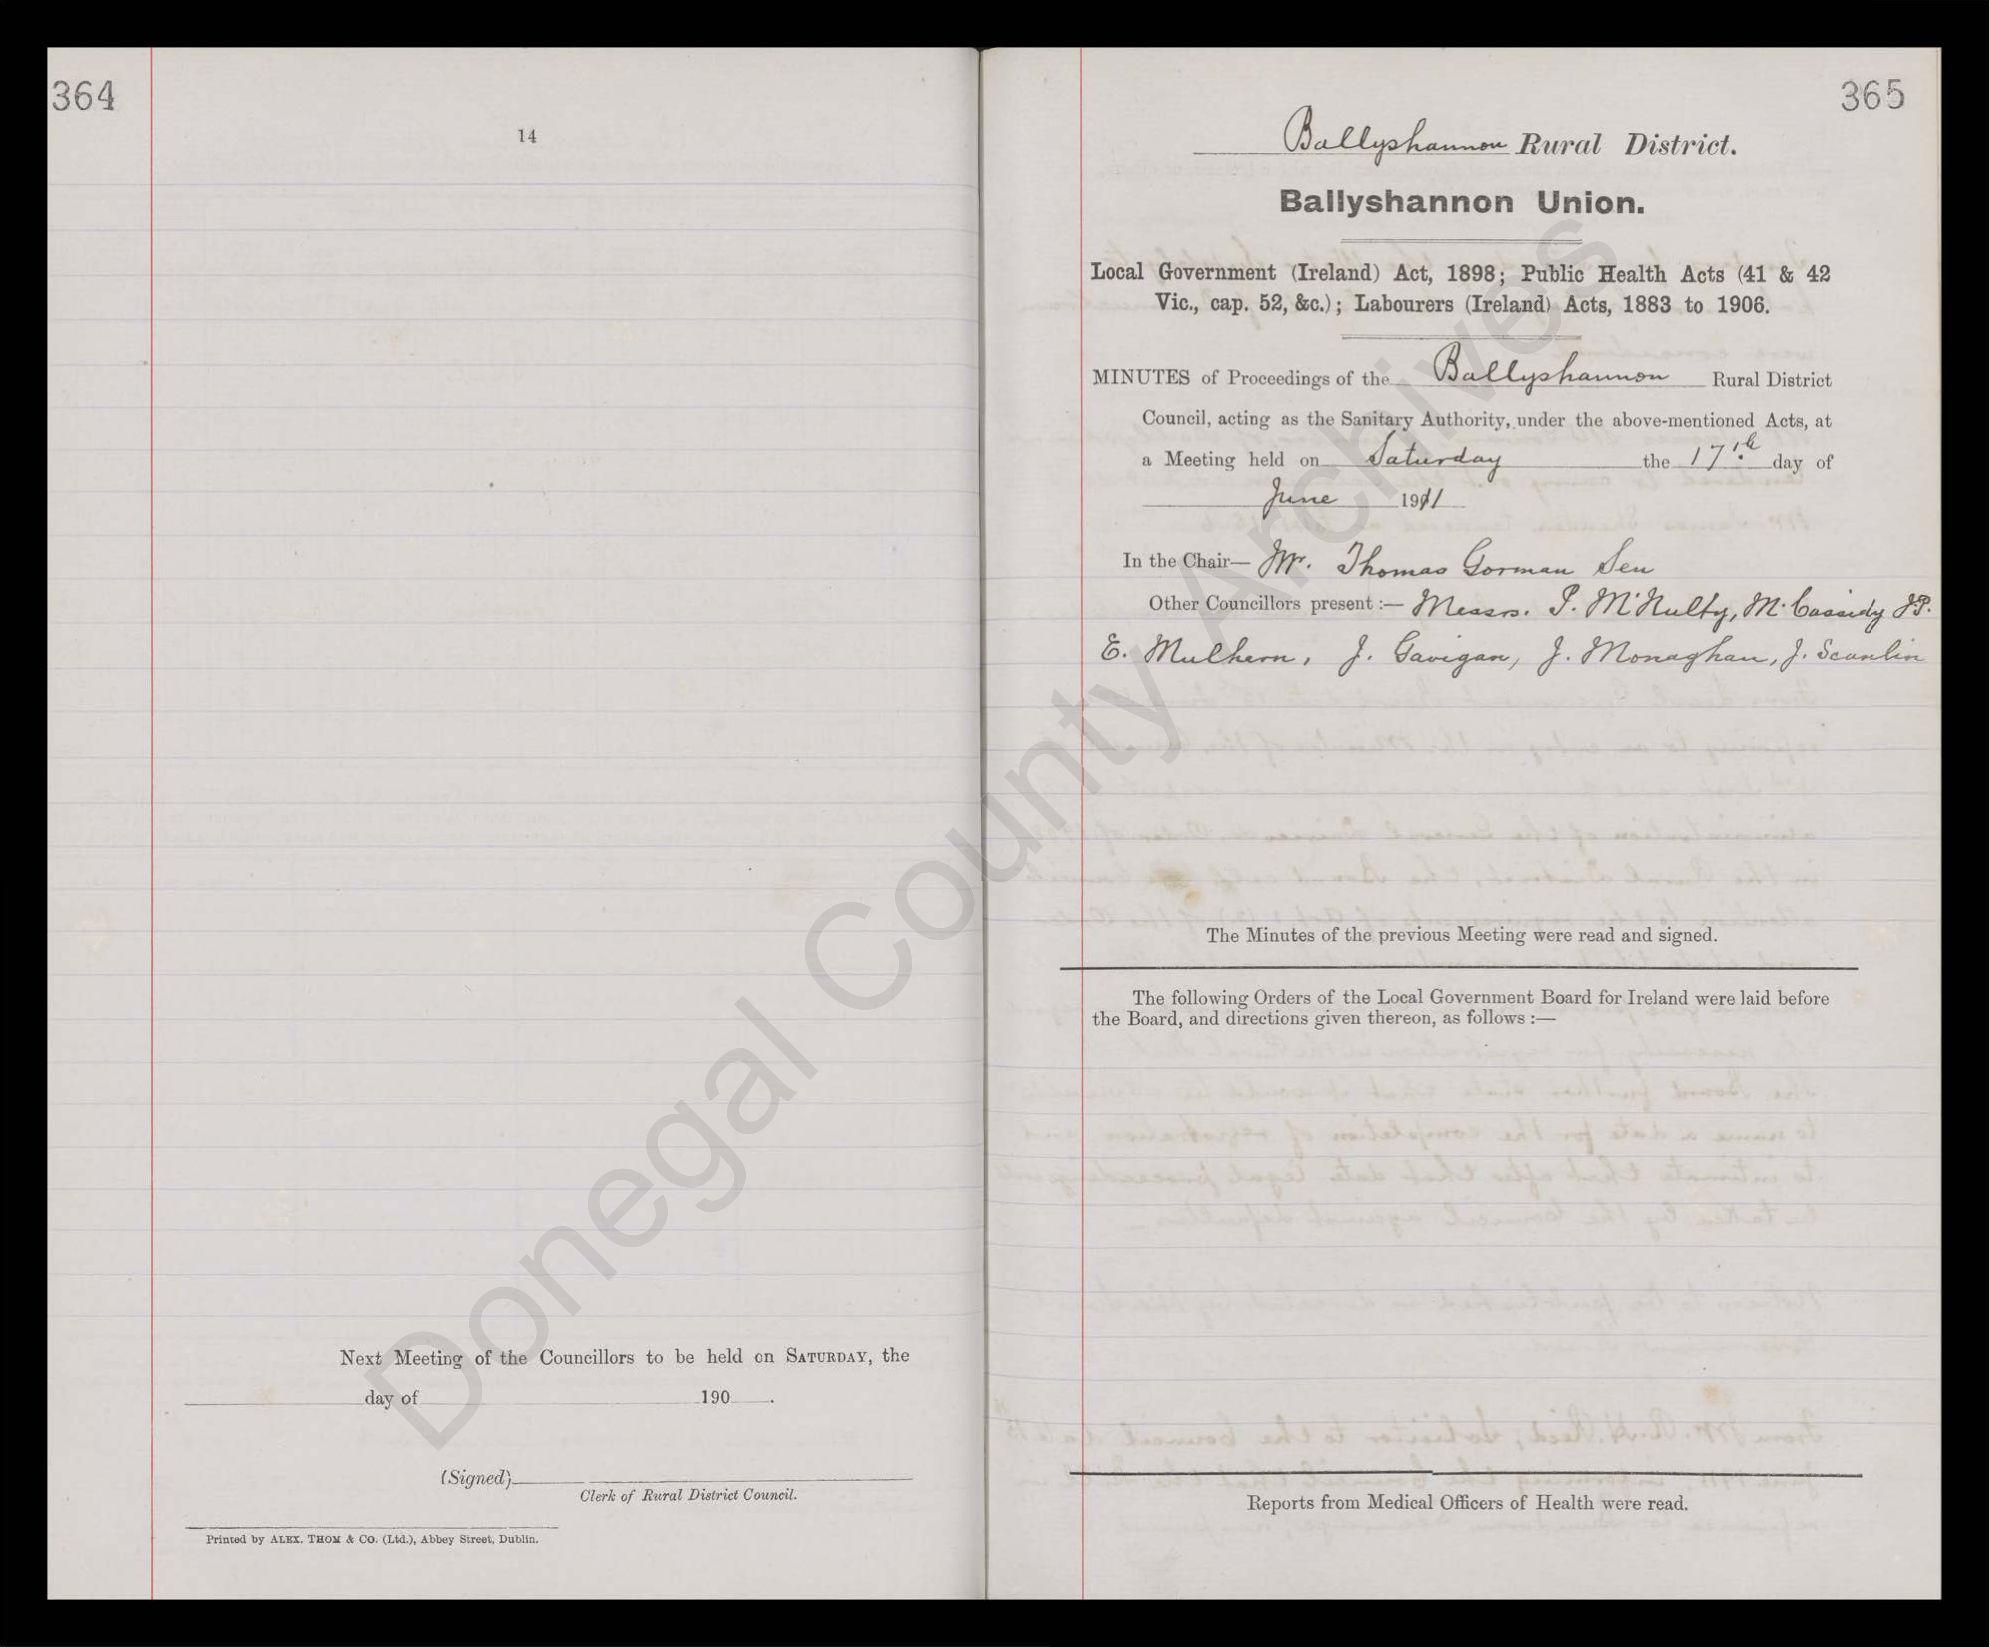 364
14
Next Meeting of the Councillors to be held on SATURDAY, the
day of 190 .
(Signed)
Clerk of Rural District Council.
Printed by ALEX. THOM & CO. (Ltd.), Abbey Street, Dublin.
365
Ballyshannon Rural District.
Ballyshannon Union.
Local Government (Ireland) Act, 1898; Public Health Acts (41 & 42
Vic., cap. 52, &c.); Labourers (Ireland) Acts, 1883 to 1906.
MINUTES of Proceedings of the Ballyshannon Rural District
Council, acting as the Sanitary Authority, under the above-mentioned Acts, at
a Meeting held on Saturday the 17th day of
June 1911
In the Chair— Mr. Thomas Gorman Sen
Other Councillors present :— Messrs. P. McNulty, M. Cassidy J.P.
E. Mulhern, J. Gavigan, J. Monaghan, J. Scanlin
The Minutes of the previous Meeting were read and signed.
The following Orders of the Local Government Board for Ireland were laid before
the Board, and directions given thereon, as follows :—
Reports from Medical Officers of Health were read.
Donegal County Archives